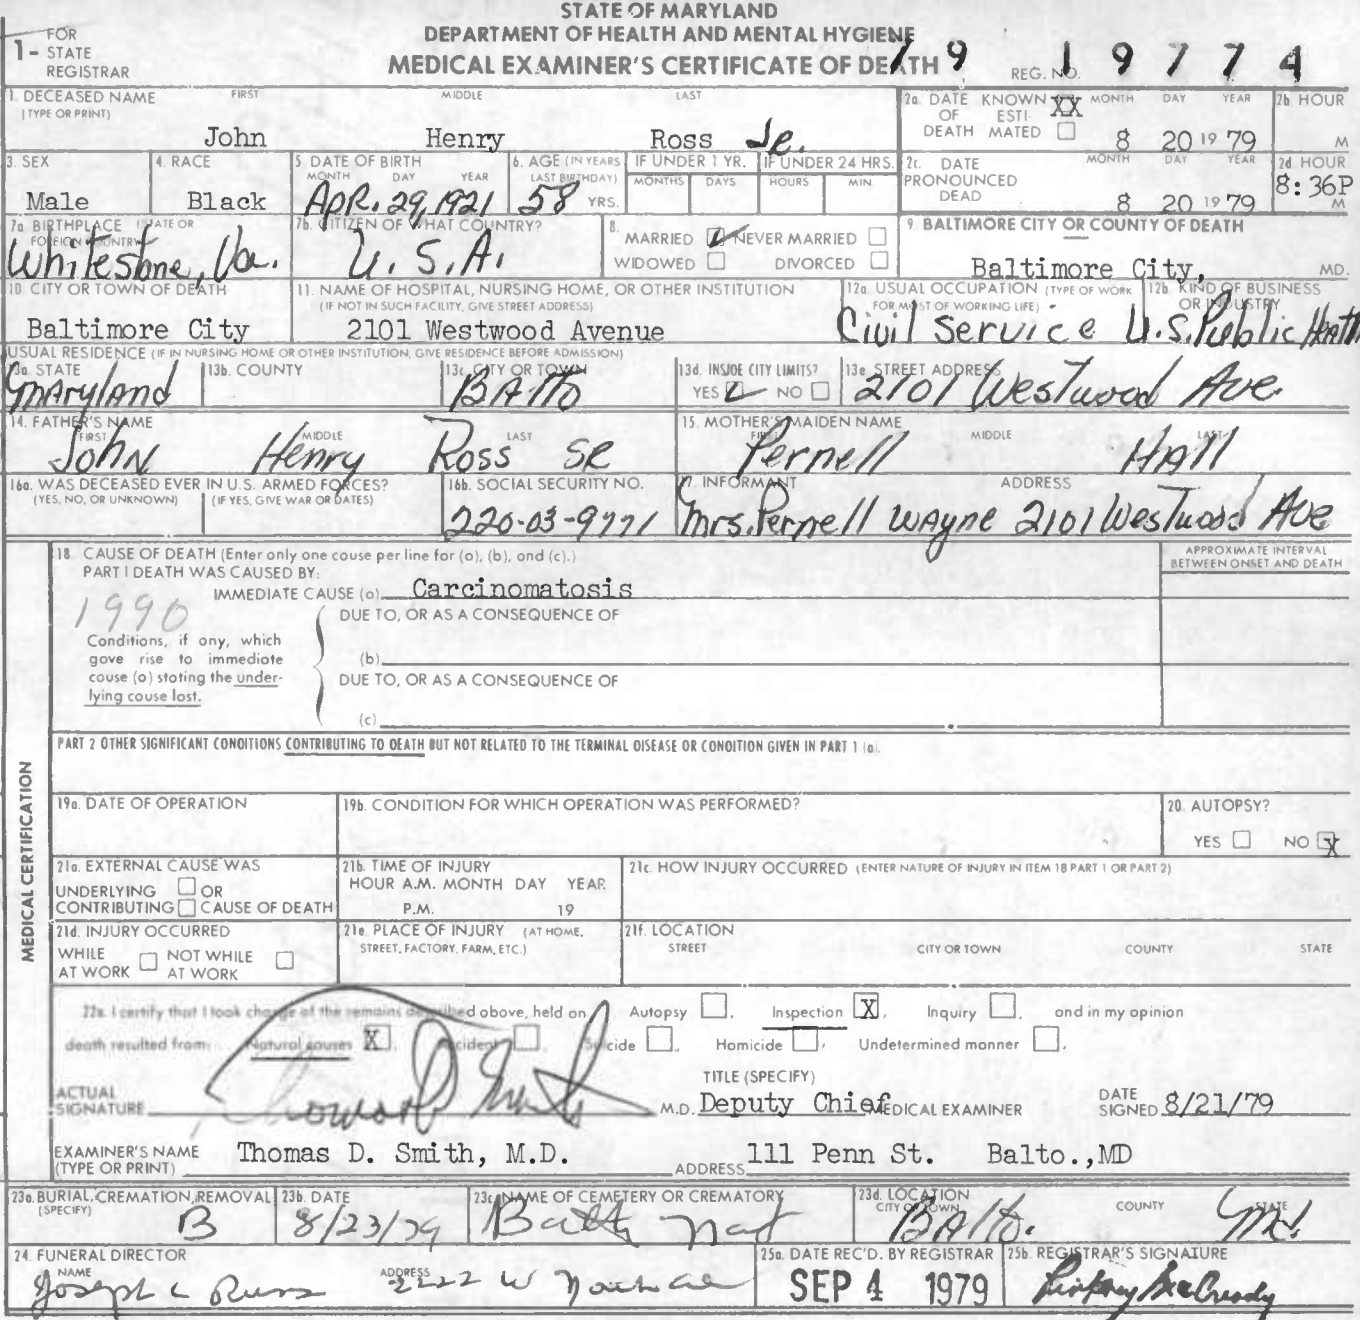 STATE OF MARYLAND
DEPARTMENT OF HEALTH AND MENTAL HYGIENE
MEDICAL EXAMINER'S CERTIFICATE OF DEATH
1- FOR STATE REGISTRAR
REG. NO. 79 19774
1. DECEASED NAME (TYPE OR PRINT) FIRST MIDDLE LAST
John Henry Ross Jr.
2a. DATE OF DEATH KNOWN XX ESTIMATED MONTH DAY YEAR 2b HOUR
8 20 19 79 M
3. SEX 4. RACE 5. DATE OF BIRTH MONTH DAY YEAR 6. AGE (IN YEARS LAST BIRTHDAY) IF UNDER 1 YR. MONTHS DAYS IF UNDER 24 HRS. HOURS MIN.
Male Black APR. 29, 1921 58 YRS.
2c. DATE PRONOUNCED DEAD MONTH DAY YEAR 2d HOUR
8 20 19 79 8:36P M
7a BIRTHPLACE (STATE OR FOREIGN COUNTRY) 7b. CITIZEN OF WHAT COUNTRY?
Whitestone, Va. U.S.A.
8. MARRIED NEVER MARRIED
WIDOWED DIVORCED
9. BALTIMORE CITY OR COUNTY OF DEATH
Baltimore City, MD.
10. CITY OR TOWN OF DEATH
Baltimore City
11. NAME OF HOSPITAL, NURSING HOME, OR OTHER INSTITUTION
(IF NOT IN SUCH FACILITY, GIVE STREET ADDRESS)
2101 Westwood Avenue
12a. USUAL OCCUPATION (TYPE OF WORK FOR MOST OF WORKING LIFE)
Civil Service
12b. KIND OF BUSINESS OR INDUSTRY
U.S. Public Health
USUAL RESIDENCE (IF IN NURSING HOME OR OTHER INSTITUTION, GIVE RESIDENCE BEFORE ADMISSION)
13a. STATE 13b. COUNTY 13c. CITY OR TOWN 13d. INSIDE CITY LIMITS? YES NO 13e STREET ADDRESS
Maryland BAlto 2101 Westwood Ave
14. FATHER'S NAME FIRST MIDDLE LAST
John Henry Ross SR
15. MOTHER'S MAIDEN NAME FIRST MIDDLE LAST
Pernell HAll
16a. WAS DECEASED EVER IN U.S. ARMED FORCES?
(YES, NO, OR UNKNOWN) (IF YES, GIVE WAR OR DATES)
16b. SOCIAL SECURITY NO.
220-03-9771
17. INFORMANT ADDRESS
Mrs. Pernell WAyne 2101 Westwood Ave
MEDICAL CERTIFICATION
18. CAUSE OF DEATH (Enter only one cause per line for (a), (b), and (c).)
PART I DEATH WAS CAUSED BY:
APPROXIMATE INTERVAL BETWEEN ONSET AND DEATH
IMMEDIATE CAUSE (a) Carcinomatosis
1990
DUE TO, OR AS A CONSEQUENCE OF
Conditions, if any, which gave rise to immediate cause (a) stating the underlying cause last.
(b)
DUE TO, OR AS A CONSEQUENCE OF
(c)
PART 2 OTHER SIGNIFICANT CONDITIONS CONTRIBUTING TO DEATH BUT NOT RELATED TO THE TERMINAL DISEASE OR CONDITION GIVEN IN PART 1 (a).
19a. DATE OF OPERATION 19b. CONDITION FOR WHICH OPERATION WAS PERFORMED? 20. AUTOPSY?
YES NO X
21a. EXTERNAL CAUSE WAS
UNDERLYING OR
CONTRIBUTING CAUSE OF DEATH
21b. TIME OF INJURY
HOUR A.M. MONTH DAY YEAR
P.M. 19
21c. HOW INJURY OCCURRED (ENTER NATURE OF INJURY IN ITEM 18 PART 1 OR PART 2)
21d. INJURY OCCURRED
WHILE AT WORK NOT WHILE AT WORK
21e. PLACE OF INJURY (AT HOME, STREET, FACTORY, FARM, ETC.)
21f. LOCATION
STREET CITY OR TOWN COUNTY STATE
22a. I certify that I took charge of the remains described above, held on Autopsy , Inspection X , Inquiry , and in my opinion
death resulted from: Natural causes X , Accident , Suicide , Homicide , Undetermined manner .
TITLE (SPECIFY)
ACTUAL SIGNATURE M.D. Deputy Chief MEDICAL EXAMINER DATE SIGNED 8/21/79
EXAMINER'S NAME (TYPE OR PRINT) Thomas D. Smith, M.D. ADDRESS 111 Penn St. Balto.,MD
23a. BURIAL, CREMATION, REMOVAL (SPECIFY) 23b. DATE 23c. NAME OF CEMETERY OR CREMATORY 23d. LOCATION CITY OR TOWN COUNTY STATE
B 8/23/79 Balto Nat BAlto. Md
24. FUNERAL DIRECTOR
NAME ADDRESS
Joseph L Russ 2222 W North Ave
25a. DATE REC'D. BY REGISTRAR 25b. REGISTRAR'S SIGNATURE
SEP 4 1979